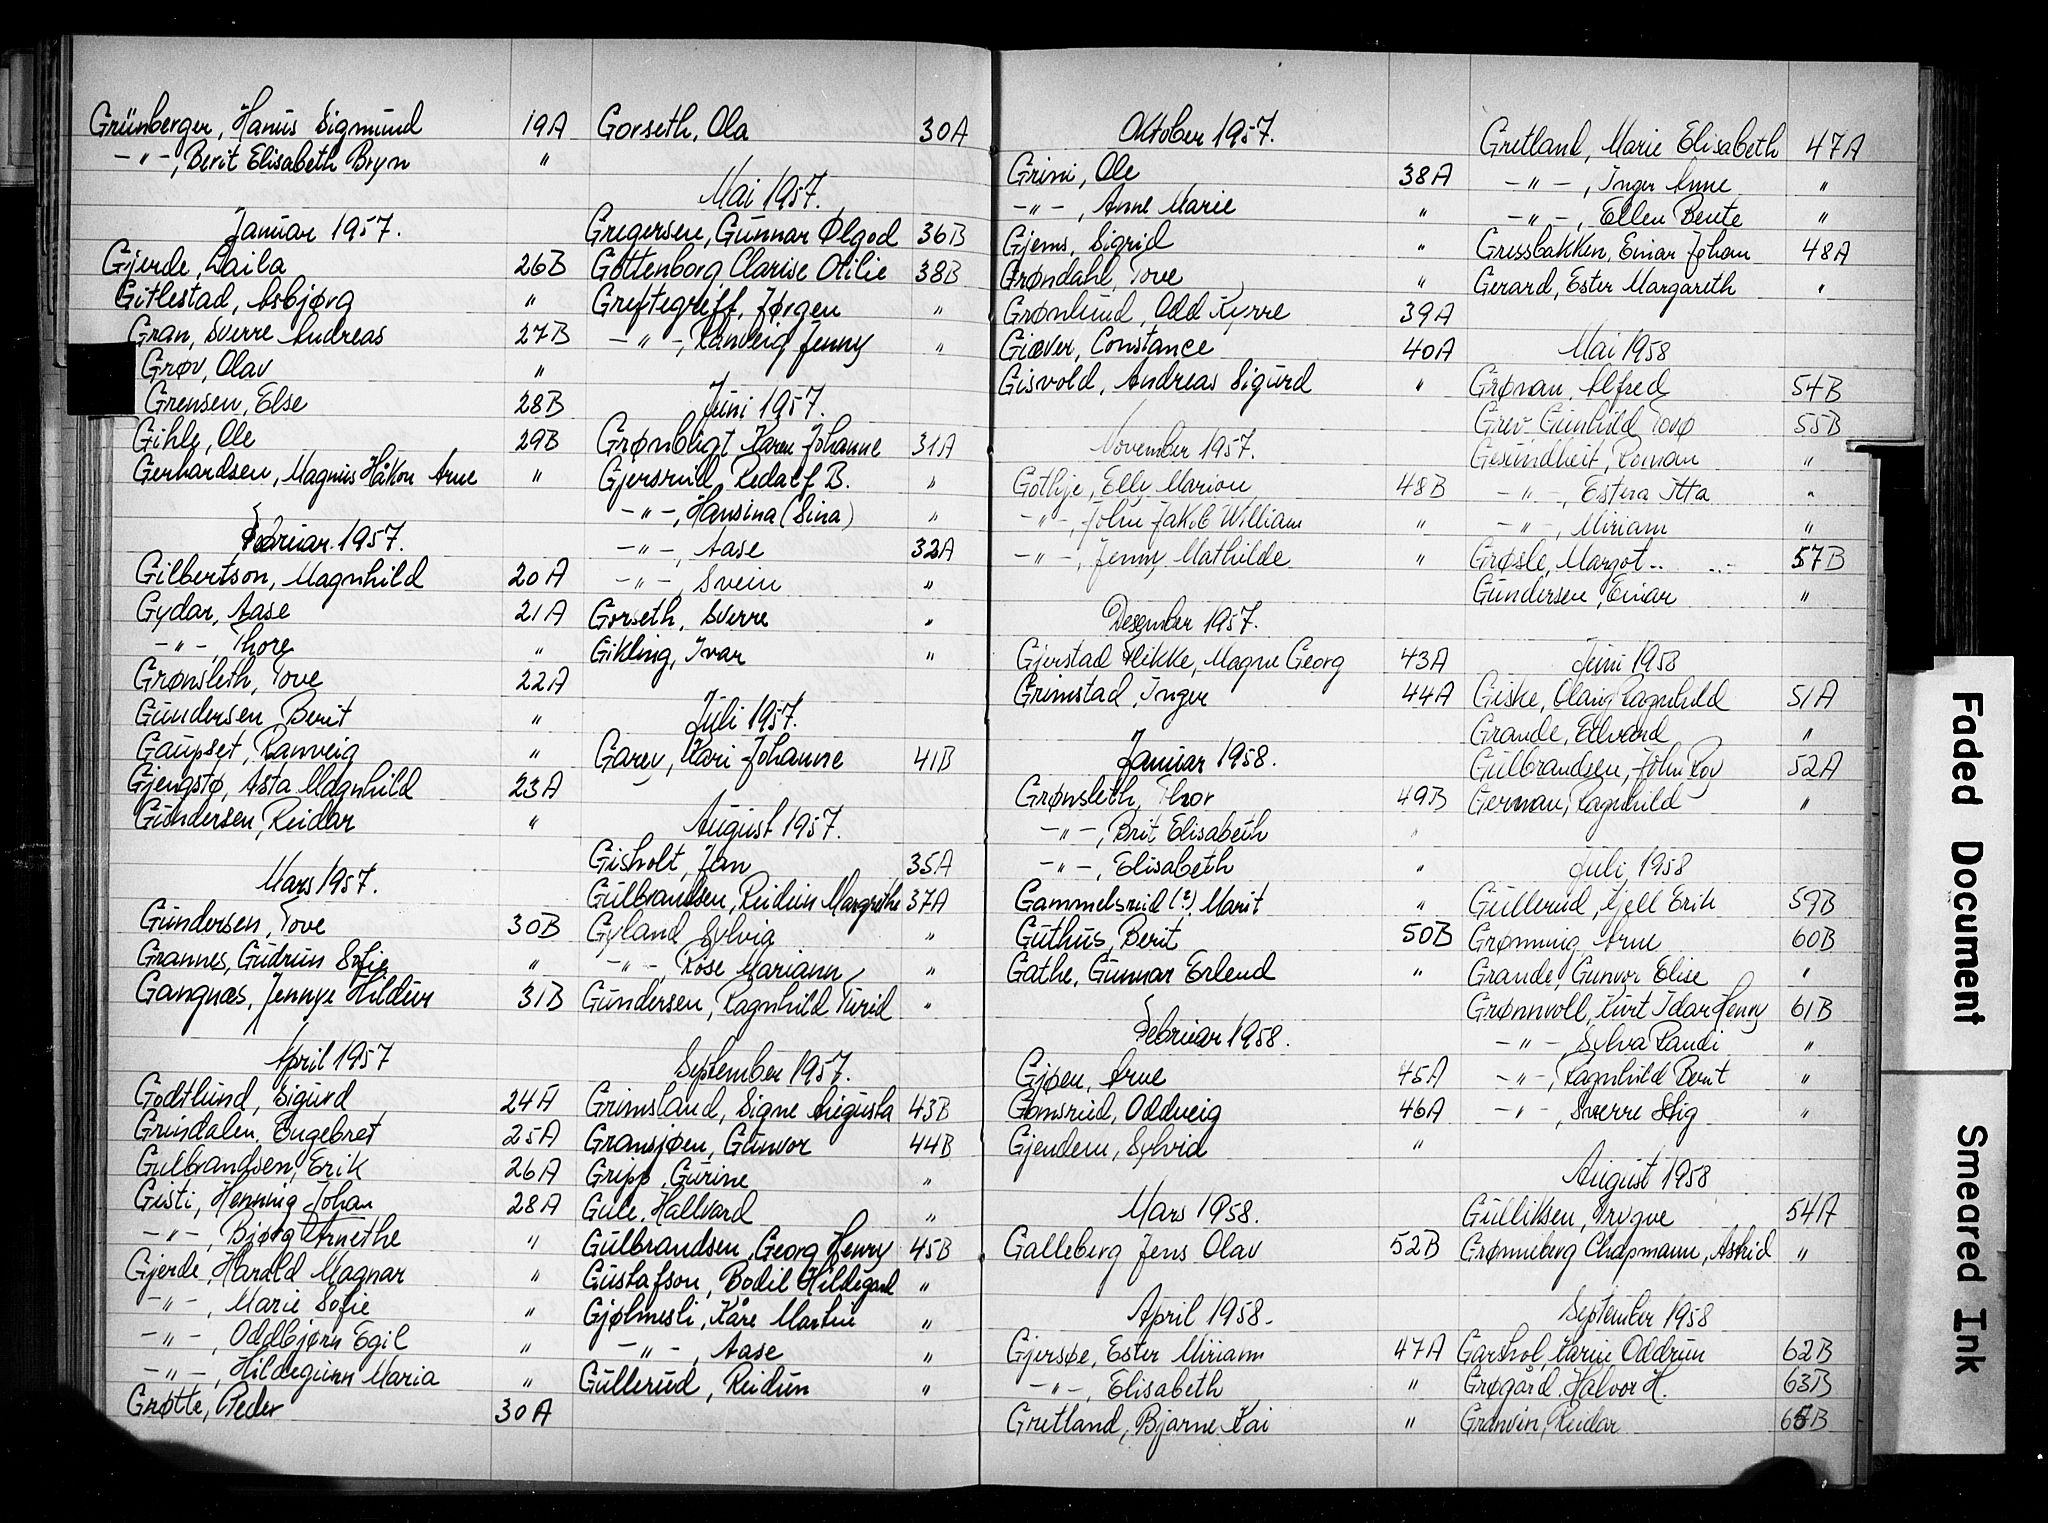 Grünberger, Hanus Sigmund 19A
-"-, Berit Elisabeth Bryn "
Januar 1957.
Gjerde, Laila 26B
Gitlestad, Asbjørg "
Gran, Sverre Andreas 27B
Grøv, Olav "
Grensen, Else 28B
Gihle, Ole 29B
Gerhardsen, Magnus Håkon Arne "
Februar 1957.
Gilbertson, Magnhild 20A
Gydar, Aase 21A
-"-, Thore "
Grønsleth, Tove 22A
Gundersen, Berit "
Gaupset, Ranveig "
Gjengstø, Asta Magnhild 23A
Gundersen, Reidar "
Mars 1957.
Gundersen, Tove 30B
Grannes, Gudrun Sofie "
Gangnæs, Jennye Hildur 31B
April 1957
Godtlund, Sigurd 24A
Grindalen, Engebret 25A
Gulbrandsen, Erik 26A
Gisti, Henning Johan 28A
-"-, Bjørg Arnethe "
Gjerde, Harald Magnar "
-"-, Marie Sofie "
-"-, Oddbjørn Egil "
-"-, Hildegunn Maria "
Grøtte, Peder 30A
Gorseth, Ola 30A
Mai 1957.
Gregersen, Gunnar Ølgod 36B
Gottenborg Clarise Otilie 38B
Greftegreff, Jørgen "
-"-, Ranveig Jenny "
Juni 1957.
Grønbligt Karen Johanne 31A
Gjersrud, Redalf B. "
-"-, Hansina (Sina) "
-"-, Aase 32A
-"-, Svein "
Gorseth, Sverre "
Gikling, Ivar "
Juli 1957.
Garey, Kari Johanne 41B
August 1957.
Gisholt, Jan 35A
Gulbrandsen, Reidun Margrethe 37A
Gyland Sylvia "
-"-, Rose Mariann "
Gundersen, Ragnhild Turid "
September 1957.
Grimsland, Signe Augusta 43B
Gransjøen, Gunvor 44B
Gripp, Gurine "
Gule, Hallvard "
Gulbrandsen, Georg Henry 45B
Gustafson, Bodil Hildegard "
Gjølmesli, Kåre Martin "
-"-, Aase "
Gullerud, Reidun "
Oktober 1957.
Grini, Ole 38A
-"-, Anne Marie "
Gjems, Sigrid "
Grøndahl, Tove "
Grønlund, Odd Kyrre 39A
Giæver, Constance 40A
Gisvold, Andreas Sigurd "
November 1957.
Gothje, Elly Marion 48B
-"-, John Jakob William "
-"-, Jenny Mathilde "
Desember 1957.
Gjerstad Hikke, Magne Georg 43A
Grimstad, Inger 44A
Januar 1958.
Grønsleth, Thor 49B
-"-, Brit Elisabeth "
-"-, Elisabeth "
Gammelsrud (?), Marit "
Guthus, Berit 50B
Gathe, Gunnar Erlend "
Februar 1958.
Gjøen, Arne 45A
Gomsrud, Oddveig 46A
Gjendem, Sylvid "
Mars 1958.
Galleberg Jens Olav 52B
April 1958.
Gjersøe, Ester Miriam 47A
-"-, Elisabeth "
Gretland, Bjarne Kai "
Gretland, Marie Elisabeth 47A
-"-, Inger Anne "
-"-, Ellen Bente "
Gressbakken, Einar Johan 48A
Gerard, Ester Margareth "
Mai 1958
Grønan, Alfred 54B
Grev Gunhild Tovø 55B
Gesundheit, Roman "
-"-, Estera Itta "
-"-, Miriam "
Grøsle, Margot 57B
Gundersen, Einar "
Juni 1958
Giske, Olaug Ragnhild 51A
Grande, Edvard "
Gulbrandsen, John Roy 52A
German, Ragnhild "
Juli 1958
Gullerud, Kjell Erik 59B
Grønning, Arne 60B
Grande, Gunvor Elise "
Grønnvoll, Kurt Idar Henry 61B
-"- Sylva Randi "
-"-, Ragnhild Berit "
-"-, Sverre Stig "
August 1958
Gulliksen, Trygve 54A
Grønneberg Chapmann, Astrid "
September 1958
Garshol, Karin Oddrun 62B
Grøgård, Halvor H. 63B
Granvin, Reidar
Faded Document
Smeared Ink